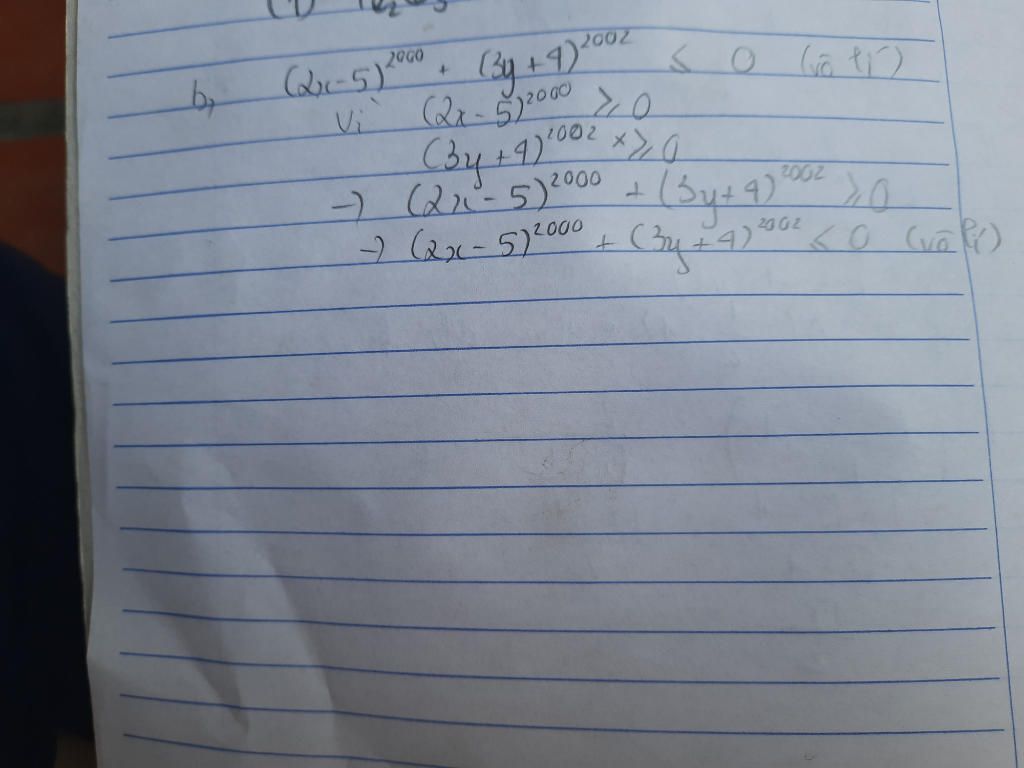 b, (2x-5)^2000 + (3y+4)^2002 ≤ 0 (vô lí)
Vì (2x-5)^2000 ≥ 0
(3y+4)^2002 ≥ 0
→ (2x-5)^2000 + (3y+4)^2002 ≥ 0
→ (2x-5)^2000 + (3y+4)^2002 ≤ 0 (vô lí)